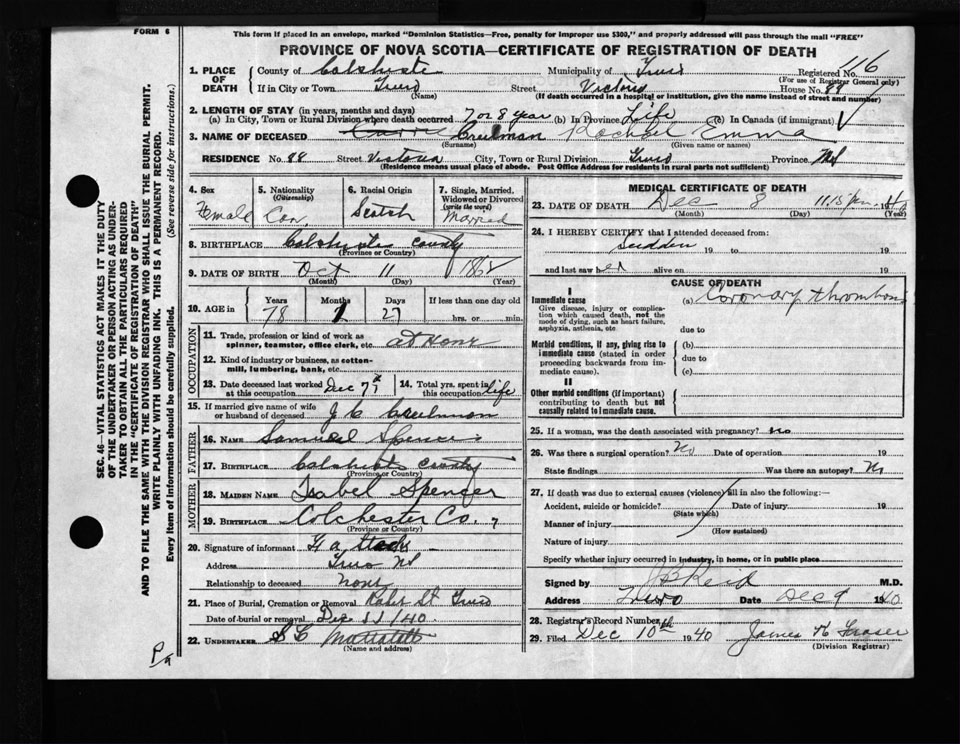 FORM 6
This form if placed in an envelope, marked "Dominion Statistics—Free, penalty for improper use $300," and properly addressed will pass through the mail "FREE"
PROVINCE OF NOVA SCOTIA—CERTIFICATE OF REGISTRATION OF DEATH
116
1. PLACE OF DEATH County of Colchester Municipality of Truro Registered No.
(For use of Registrar General only)
If in City or Town Truro Street Victoria House No. 88
(Name) (If death occurred in a hospital or institution, give the name instead of street and number)
2. LENGTH OF STAY (in years, months and days)
(a) In City, Town or Rural Division where death occurred 7 or 8 year (b) In Province Life (c) In Canada (if immigrant)
3. NAME OF DECEASED Creelman Rachael Emma
(Surname) (Given name or names)
RESIDENCE No. 88 Street Victoria City, Town or Rural Division Truro Province NS
(Residence means usual place of abode. Post Office Address for residents in rural parts not sufficient)
4. Sex Female
5. Nationality (Citizenship) Can
6. Racial Origin Scotch
7. Single, Married, Widowed or Divorced (write the word) Married
8. BIRTHPLACE Colchester County
(Province or Country)
9. DATE OF BIRTH Oct 11 1862
(Month) (Day) (Year)
10. AGE in Years Months Days If less than one day old
78 1 27 hrs. or min.
OCCUPATION
11. Trade, profession or kind of work as spinner, teamster, office clerk, etc. at Home
12. Kind of industry or business, as cotton-mill, lumbering, bank, etc.
13. Date deceased last worked at this occupation Dec 7th
14. Total yrs. spent in this occupation life
15. If married give name of wife or husband of deceased J C Creelman
FATHER
16. NAME Samuel Spencer
17. BIRTHPLACE Colchester County
(Province or Country)
MOTHER
18. MAIDEN NAME Isabel Spencer
19. BIRTHPLACE Colchester Co.
(Province or Country)
20. Signature of informant
Address Truro NS
Relationship to deceased none
21. Place of Burial, Cremation or Removal St Truro
Date of burial or removal Dec 11/40
22. UNDERTAKER
(Name and address)
MEDICAL CERTIFICATE OF DEATH
23. DATE OF DEATH Dec 8 19
(Month) (Day) (Year)
24. I HEREBY CERTIFY that I attended deceased from:
Sudden 19 to 19
and last saw her alive on 19
CAUSE OF DEATH
I
Immediate cause (a) Coronary thrombosis
Give disease, injury or complication which caused death, not the mode of dying, such as heart failure, asphyxia, asthenia, etc
due to
Morbid conditions, if any, giving rise to immediate cause (stated in order proceeding backwards from immediate cause).
(b)
due to
(c)
II
Other morbid conditions (if important) contributing to death but not causally related to immediate cause.
25. If a woman, was the death associated with pregnancy? no
26. Was there a surgical operation? No Date of operation 19
State findings Was there an autopsy? No
27. If death was due to external causes (violence) fill in also the following:—
Accident, suicide or homicide? Date of injury 19
(State which)
Manner of injury
(How sustained)
Nature of injury
Specify whether injury occurred in industry, in home, or in public place
Signed by Reid M.D.
Address Truro Date Dec 9 1940
28. Registrar's Record Number
29. Filed Dec 10th 1940 James K Fraser
(Division Registrar)
SEC. 46—VITAL STATISTICS ACT MAKES IT THE DUTY
OF THE UNDERTAKER OR PERSON ACTING AS UNDERTAKER
TO OBTAIN ALL THE PARTICULARS REQUIRED
IN THE "CERTIFICATE OF REGISTRATION OF DEATH"
AND TO FILE THE SAME WITH THE DIVISION REGISTRAR WHO SHALL ISSUE THE BURIAL PERMIT.
WRITE PLAINLY WITH UNFADING INK. THIS IS A PERMANENT RECORD.
Every item of information should be carefully supplied. (See reverse side for instructions.)